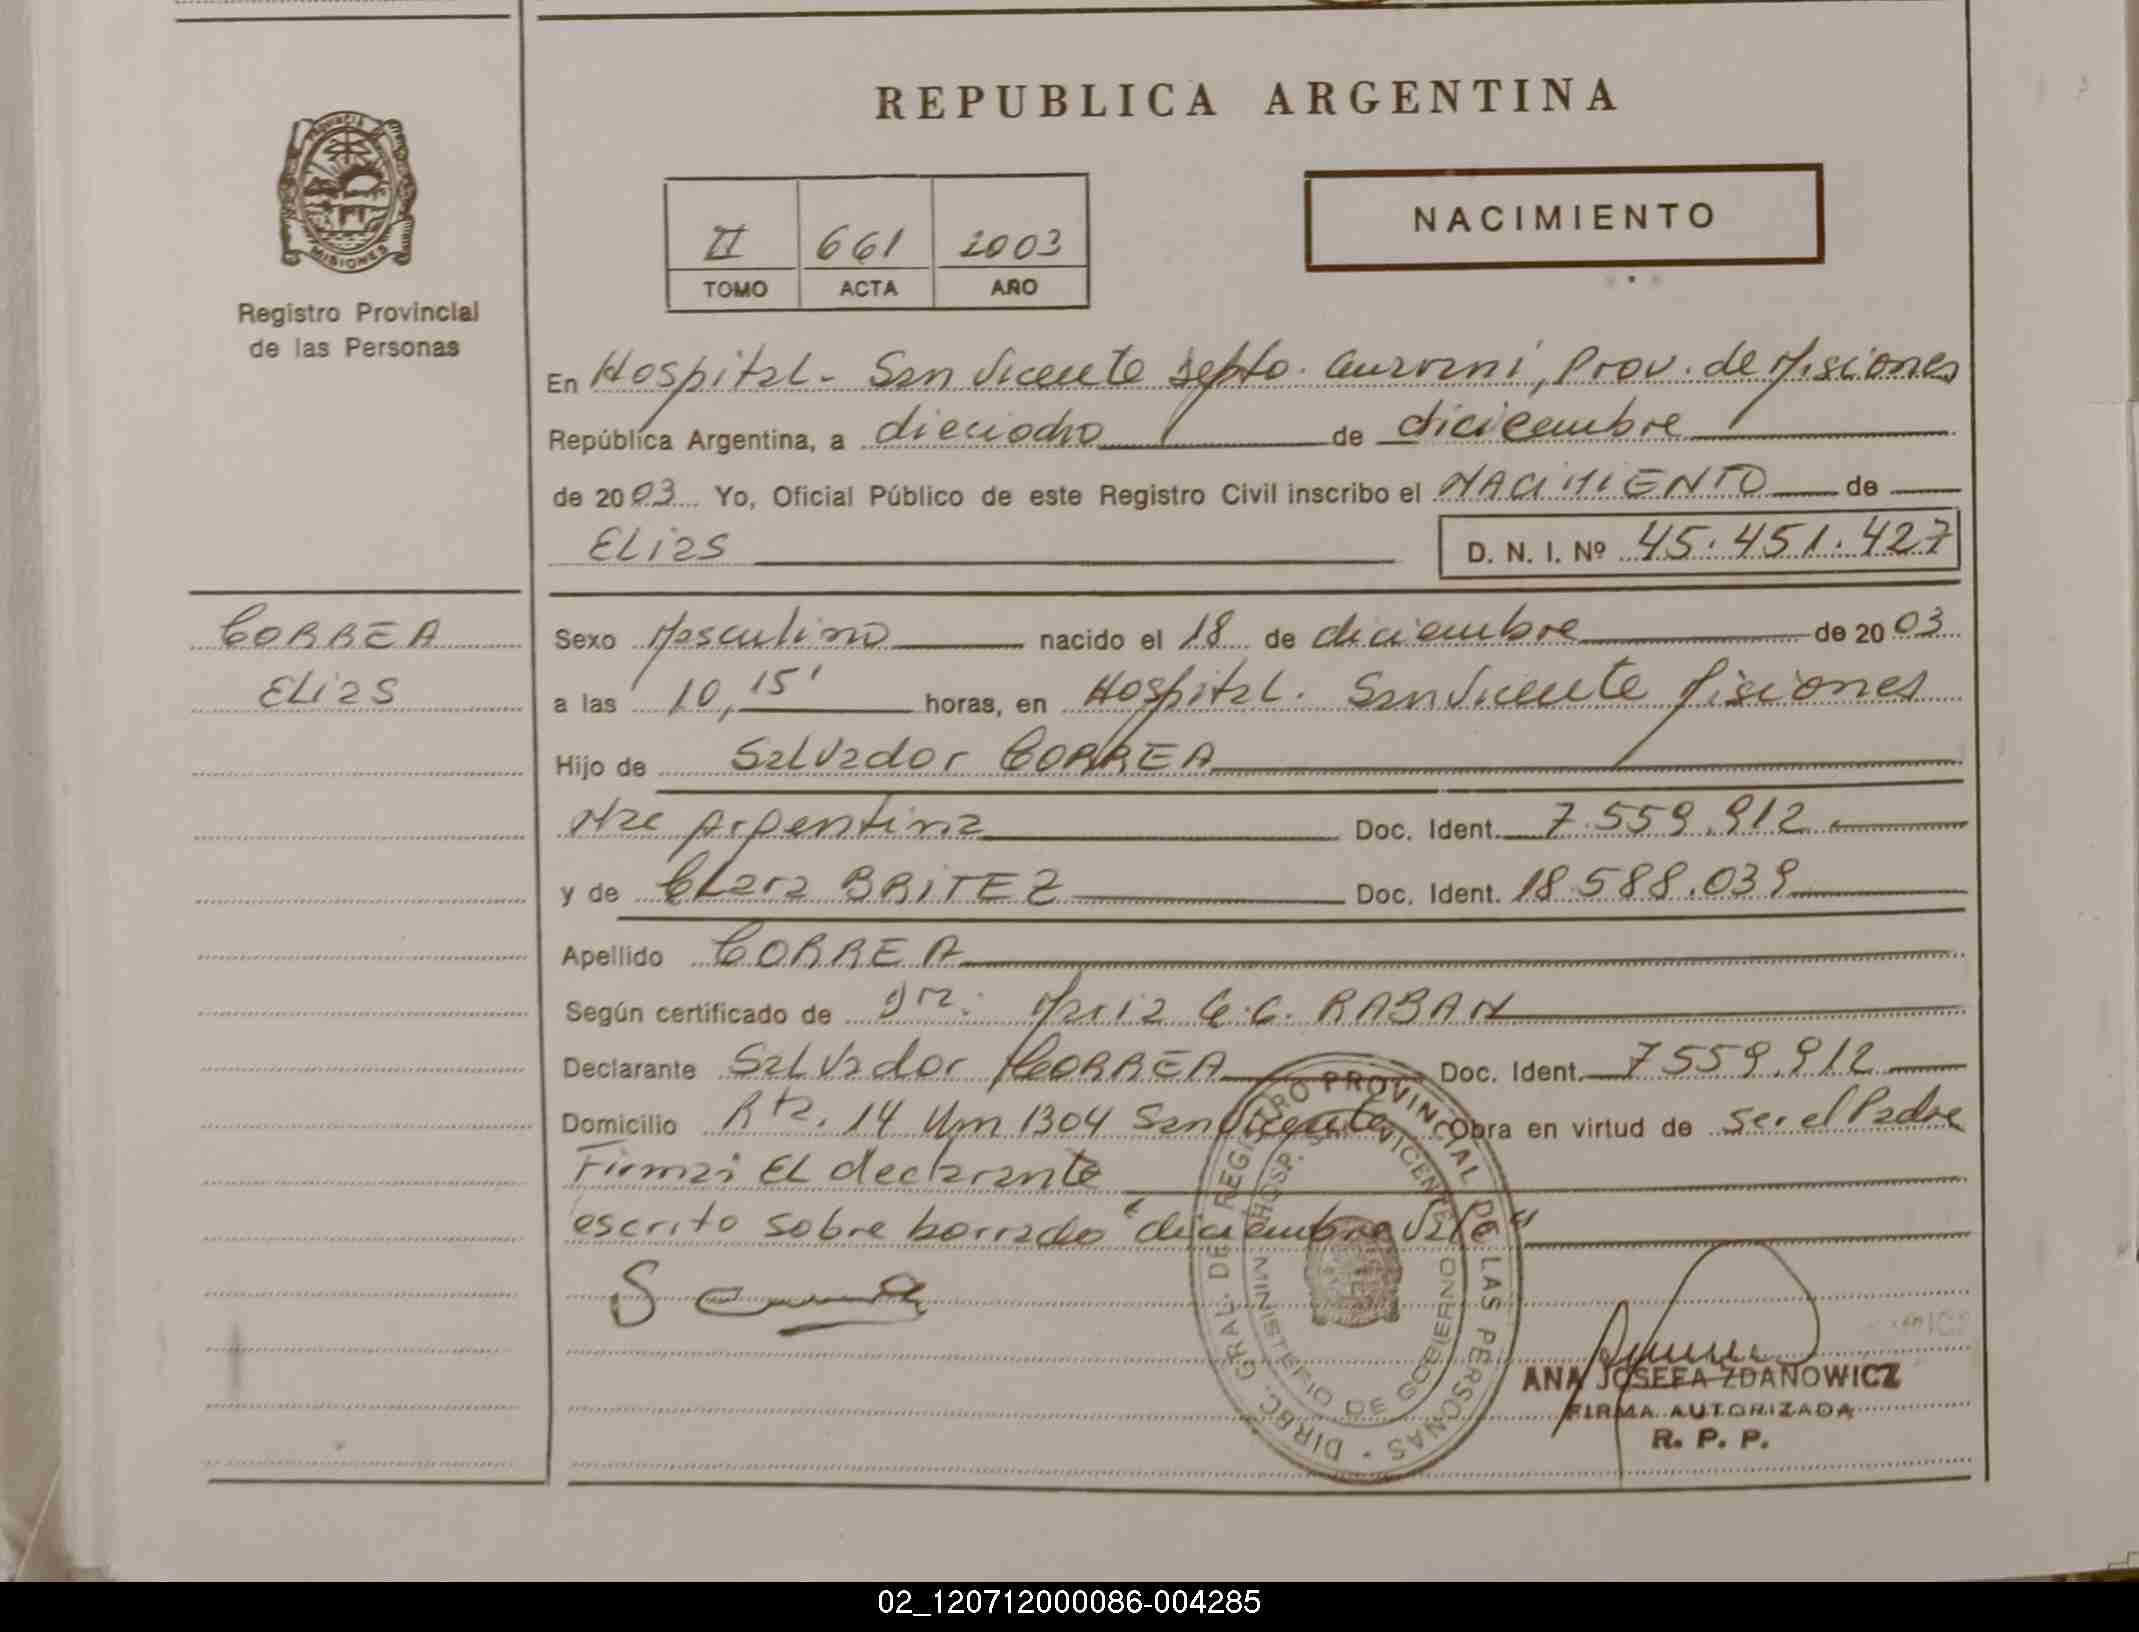 REPUBLICA ARGENTINA
MISIONES
Registro Provincial
de las Personas
II 661 2003
TOMO ACTA AÑO
NACIMIENTO
En Hospital - San Vicente Depto. Guaraní, Prov. de Misiones
República Argentina, a dieciocho de diciembre
de 2003 Yo, Oficial Público de este Registro Civil inscribo el NACIMIENTO de
Elias
D. N. I. Nº 45.451.427
CORREA
Elias
Sexo Masculino nacido el 18 de diciembre de 2003
a las 10, 15' horas, en Hospital. San Vicente Misiones
Hijo de Salvador CORREA
Nac Argentina Doc. Ident. 7.559.912
y de Clara BRITEZ Doc. Ident. 18.588.039
Apellido CORREA
Según certificado de Dra. Maria C.C. RABAN
Declarante Salvador CORREA Doc. Ident. 7559.912
Domicilio Rta. 14 Km 1304 San Vicente Obra en virtud de Ser el Padre
Firma: El declarante
escrito sobre borrado "diciembre Vale"
DIREC. GRAL. DE REGISTRO PROVINCIAL DE LAS PERSONAS
HOSP. SAN VICENTE
MINISTERIO DE GOBIERNO
ANA JOSEFA ZDANOWICZ
FIRMA AUTORIZADA
R. P. P.
02_120712000086-004285